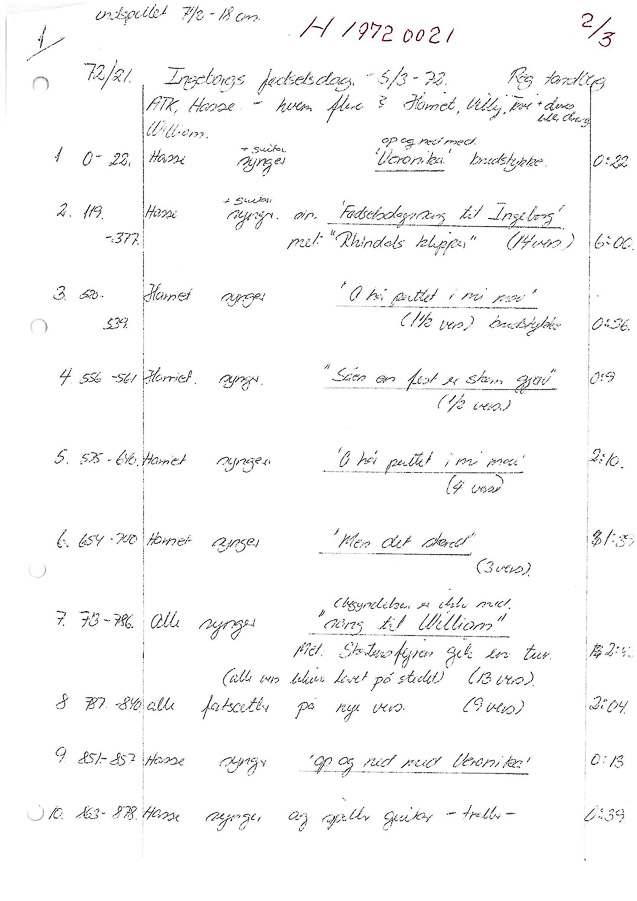 indspillet 7 1/2 - 18 cm.
1/
H 1972 0021
2/3
72/21. Ingeborgs fødselsdag. - 5/3-72. Reg
ATK, Hasse - hvem flere? Harriet, Villy,
William.
1 0-22. Hasse + guitar synger op og ned med. 'Veronika' brudstykke. 0:22
2. 119. Hasse + guitar synger. 'Fødselsdagssang til Ingeborg'
-377. mel: "Rhindals klipper" (14 vers) 6:00
3. 520- Harriet synger "A hår puttet i mi"
539. (1 1/2 vers) brudstykke 0:36
4. 556-561 Harriet. synger. "Såen en fest er gjov"
(1/2 vers)
5. 575-640. Harriet synger 'A hår puttet i mi'
2:10.
(4 vers)
6. 654-700 Harriet synger 'Men det'
(3 vers).
7. 713-786. alle synger (begyndelsen er ikke med.
"sang til William"
Mel. gik en tur.
(alle vers bliver lavet på stedet) (13 vers).
8 787.-840 alle fortsætter på nye vers. (9 vers) 2:04.
9. 851-857 Hasse synger 'op og ned med Veronika' 0:13
10. 863-878. Hasse synger og spiller guitar - traller - 0:39